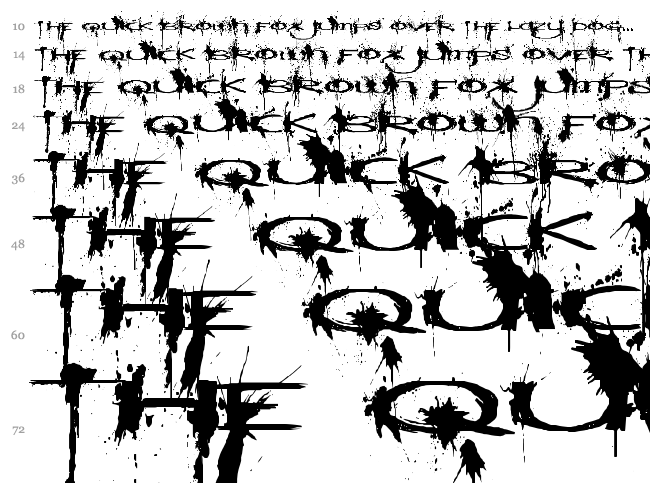 10 THE QUICK BROWN FOX JUMPS OVER THE LAZY DOG...
14 THE QUICK BROWN FOX JUMPS OVER TH
18 THE QUICK BROWN FOX JUMPS
24 THE QUICK BROWN FOX
36 THE QUICK BRO
48 THE QUICK
60 THE QUIC
72 THE QU